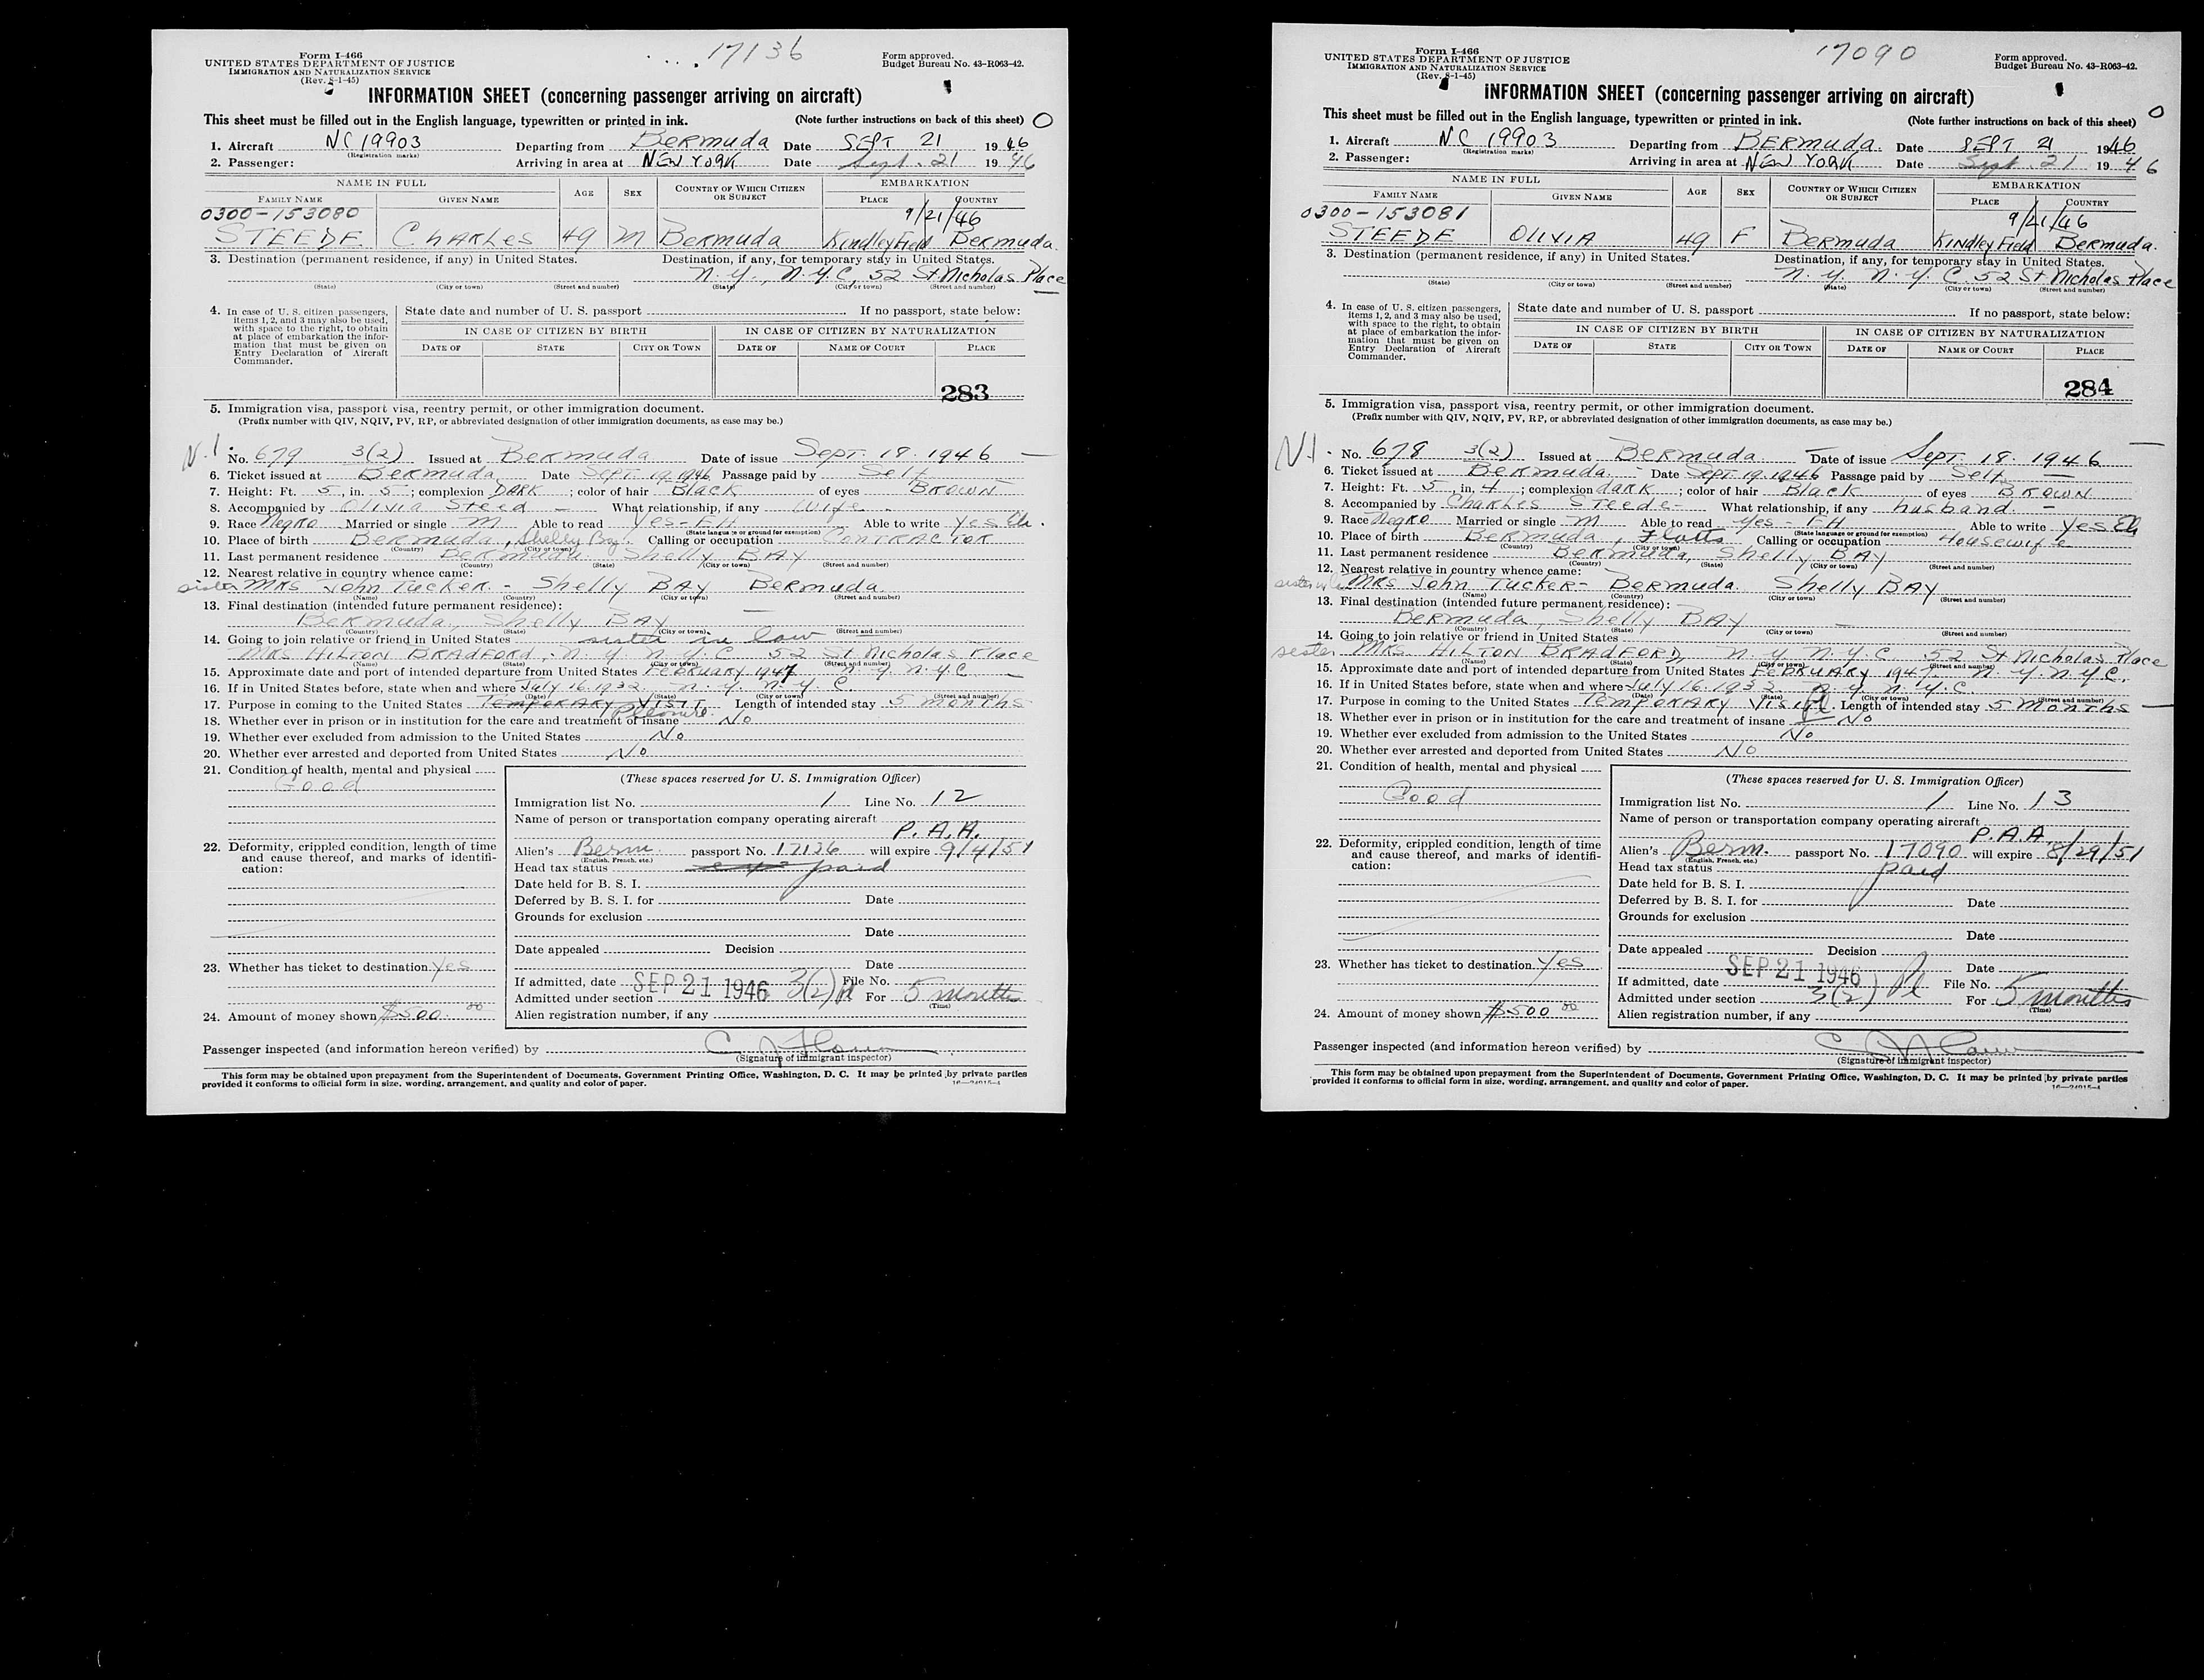 Form I-466
UNITED STATES DEPARTMENT OF JUSTICE
IMMIGRATION AND NATURALIZATION SERVICE
(Rev. 8-1-45)
17136
Form approved.
Budget Bureau No. 43-R063-42.
INFORMATION SHEET (concerning passenger arriving on aircraft)
This sheet must be filled out in the English language, typewritten or printed in ink. (Note further instructions on back of this sheet) O
1. Aircraft NC 19903 Departing from Bermuda Date SEPT 21 1946
(Registration marks)
2. Passenger: Arriving in area at NEW YORK Date Sept. 21 1946
NAME IN FULL AGE SEX COUNTRY OF WHICH CITIZEN OR SUBJECT EMBARKATION
FAMILY NAME GIVEN NAME PLACE COUNTRY
0300-153080 9/21/46
STEEDE CHARLES 49 M Bermuda Kindley Field Bermuda.
3. Destination (permanent residence, if any) in United States. Destination, if any, for temporary stay in United States.
N.Y., N.Y.C, 52 St Nicholas Place
(State) (City or town) (Street and number) (State) (City or town) (Street and number)
4. In case of U. S. citizen passengers, items 1, 2, and 3 may also be used, with space to the right, to obtain at place of embarkation the information that must be given on Entry Declaration of Aircraft Commander.
State date and number of U. S. passport If no passport, state below:
IN CASE OF CITIZEN BY BIRTH IN CASE OF CITIZEN BY NATURALIZATION
DATE OF STATE CITY OR TOWN DATE OF NAME OF COURT PLACE
283
5. Immigration visa, passport visa, reentry permit, or other immigration document.
(Prefix number with QIV, NQIV, PV, RP, or abbreviated designation of other immigration documents, as case may be.)
No. 679 3(2) Issued at Bermuda Date of issue Sept. 18. 1946
6. Ticket issued at Bermuda Date Sept. 19 1946 Passage paid by Self
7. Height: Ft. 5, in. 5; complexion DARK; color of hair Black of eyes BROWN
8. Accompanied by Olivia Steed What relationship, if any Wife
9. Race Negro Married or single M Able to read Yes - Able to write Yes
(State language or ground for exemption)
10. Place of birth Bermuda, Shelly Bay Calling or occupation CONTRACTOR
(Country) (City or town)
11. Last permanent residence Bermuda Shelly BAY
(Country) (State) (City or town) (Street and number)
12. Nearest relative in country whence came:
sister MRS John Tucker - Shelly BAY Bermuda.
(Name) (Country) (City or town) (Street and number)
13. Final destination (intended future permanent residence):
Bermuda, Shelly BAY
(Country) (State) (City or town) (Street and number)
14. Going to join relative or friend in United States sister in law
MRS HILTON BRADFORD, N.Y. N.Y.C 52 St Nicholas Place
(Name) (State) (City or town) (Street and number)
15. Approximate date and port of intended departure from United States FEBRUARY 1947 N.Y. N.Y.C
16. If in United States before, state when and where July 16. 1932 N.Y. N.Y.C.
(Date) (State) (City or town) (Street and number)
17. Purpose in coming to the United States TEMPORARY VISIT Pleasure. Length of intended stay 5 months
18. Whether ever in prison or in institution for the care and treatment of insane No
19. Whether ever excluded from admission to the United States No
20. Whether ever arrested and deported from United States No
21. Condition of health, mental and physical
Good
22. Deformity, crippled condition, length of time and cause thereof, and marks of identification:
23. Whether has ticket to destination Yes
24. Amount of money shown $500 00
(These spaces reserved for U. S. Immigration Officer)
Immigration list No. 1 Line No. 12
Name of person or transportation company operating aircraft
P. A. A.
Alien's Berm. passport No. 17136 will expire 9/4/51
(English, French, etc.)
Head tax status paid
Date held for B. S. I.
Deferred by B. S. I. for Date
Grounds for exclusion
Date
Date appealed Decision
Date
If admitted, date SEP 21 1946 File No.
Admitted under section 3(2) Pl For 5 months
(Time)
Alien registration number, if any
Passenger inspected (and information hereon verified) by
(Signature of immigrant inspector)
This form may be obtained upon prepayment from the Superintendent of Documents, Government Printing Office, Washington, D. C. It may be printed by private parties
provided it conforms to official form in size, wording, arrangement, and quality and color of paper.
Form I-466
UNITED STATES DEPARTMENT OF JUSTICE
IMMIGRATION AND NATURALIZATION SERVICE
(Rev. 8-1-45)
17090
Form approved.
Budget Bureau No. 43-R063-42.
INFORMATION SHEET (concerning passenger arriving on aircraft)
This sheet must be filled out in the English language, typewritten or printed in ink. (Note further instructions on back of this sheet) O
1. Aircraft NC 19903 Departing from BERMUDA. Date SEPT 21 1946
(Registration marks)
2. Passenger: Arriving in area at NEW YORK Date Sept. 21 1946
NAME IN FULL AGE SEX COUNTRY OF WHICH CITIZEN OR SUBJECT EMBARKATION
FAMILY NAME GIVEN NAME PLACE COUNTRY
0300-153081 9/21/46
STEEDE OLIVIA 49 F Bermuda Kindley Field Bermuda.
3. Destination (permanent residence, if any) in United States. Destination, if any, for temporary stay in United States.
N.Y. N.Y.C. 52 St Nicholas Place
(State) (City or town) (Street and number) (State) (City or town) (Street and number)
4. In case of U. S. citizen passengers, items 1, 2, and 3 may also be used, with space to the right, to obtain at place of embarkation the information that must be given on Entry Declaration of Aircraft Commander.
State date and number of U. S. passport If no passport, state below:
IN CASE OF CITIZEN BY BIRTH IN CASE OF CITIZEN BY NATURALIZATION
DATE OF STATE CITY OR TOWN DATE OF NAME OF COURT PLACE
284
5. Immigration visa, passport visa, reentry permit, or other immigration document.
(Prefix number with QIV, NQIV, PV, RP, or abbreviated designation of other immigration documents, as case may be.)
No. 678 3(2) Issued at Bermuda Date of issue Sept. 18. 1946
6. Ticket issued at Bermuda. Date Sept 19 1946 Passage paid by Self
7. Height: Ft. 5, in. 4; complexion dark; color of hair Black of eyes BROWN
8. Accompanied by Charles Steede- What relationship, if any husband.
9. Race Negro Married or single M Able to read Yes - Able to write Yes
(State language or ground for exemption)
10. Place of birth Bermuda, Flatts Calling or occupation Housewife
(Country) (City or town)
11. Last permanent residence Bermuda, Shelly BAY
(Country) (State) (City or town) (Street and number)
12. Nearest relative in country whence came:
MRS John Tucker- Bermuda. Shelly BAY
(Name) (Country) (City or town) (Street and number)
13. Final destination (intended future permanent residence):
Bermuda, Shelly BAY
(Country) (State) (City or town) (Street and number)
14. Going to join relative or friend in United States
sister MRS HILTON BRADFORD, N.Y. N.Y.C 52 St Nicholas Place
(Name) (State) (City or town) (Street and number)
15. Approximate date and port of intended departure from United States FEBRUARY 1947. N.Y. N.Y.C.
16. If in United States before, state when and where July 16. 1932 N.Y. N.Y.C.
(Date) (State) (City or town) (Street and number)
17. Purpose in coming to the United States TEMPORARY Visit Pl. Length of intended stay 5 months
18. Whether ever in prison or in institution for the care and treatment of insane No
19. Whether ever excluded from admission to the United States No
20. Whether ever arrested and deported from United States No
21. Condition of health, mental and physical
Good
22. Deformity, crippled condition, length of time and cause thereof, and marks of identification:
23. Whether has ticket to destination Yes
24. Amount of money shown $500 00
(These spaces reserved for U. S. Immigration Officer)
Immigration list No. 1 Line No. 13
Name of person or transportation company operating aircraft
P.A.A.
Alien's Berm. passport No. 17090 will expire 8/29/51
(English, French, etc.)
Head tax status paid
Date held for B. S. I.
Deferred by B. S. I. for Date
Grounds for exclusion
Date
Date appealed Decision
Date
If admitted, date SEP 21 1946 File No.
Admitted under section 3(2) Pl For 5 months
(Time)
Alien registration number, if any
Passenger inspected (and information hereon verified) by
(Signature of immigrant inspector)
This form may be obtained upon prepayment from the Superintendent of Documents, Government Printing Office, Washington, D. C. It may be printed by private parties
provided it conforms to official form in size, wording, arrangement, and quality and color of paper.